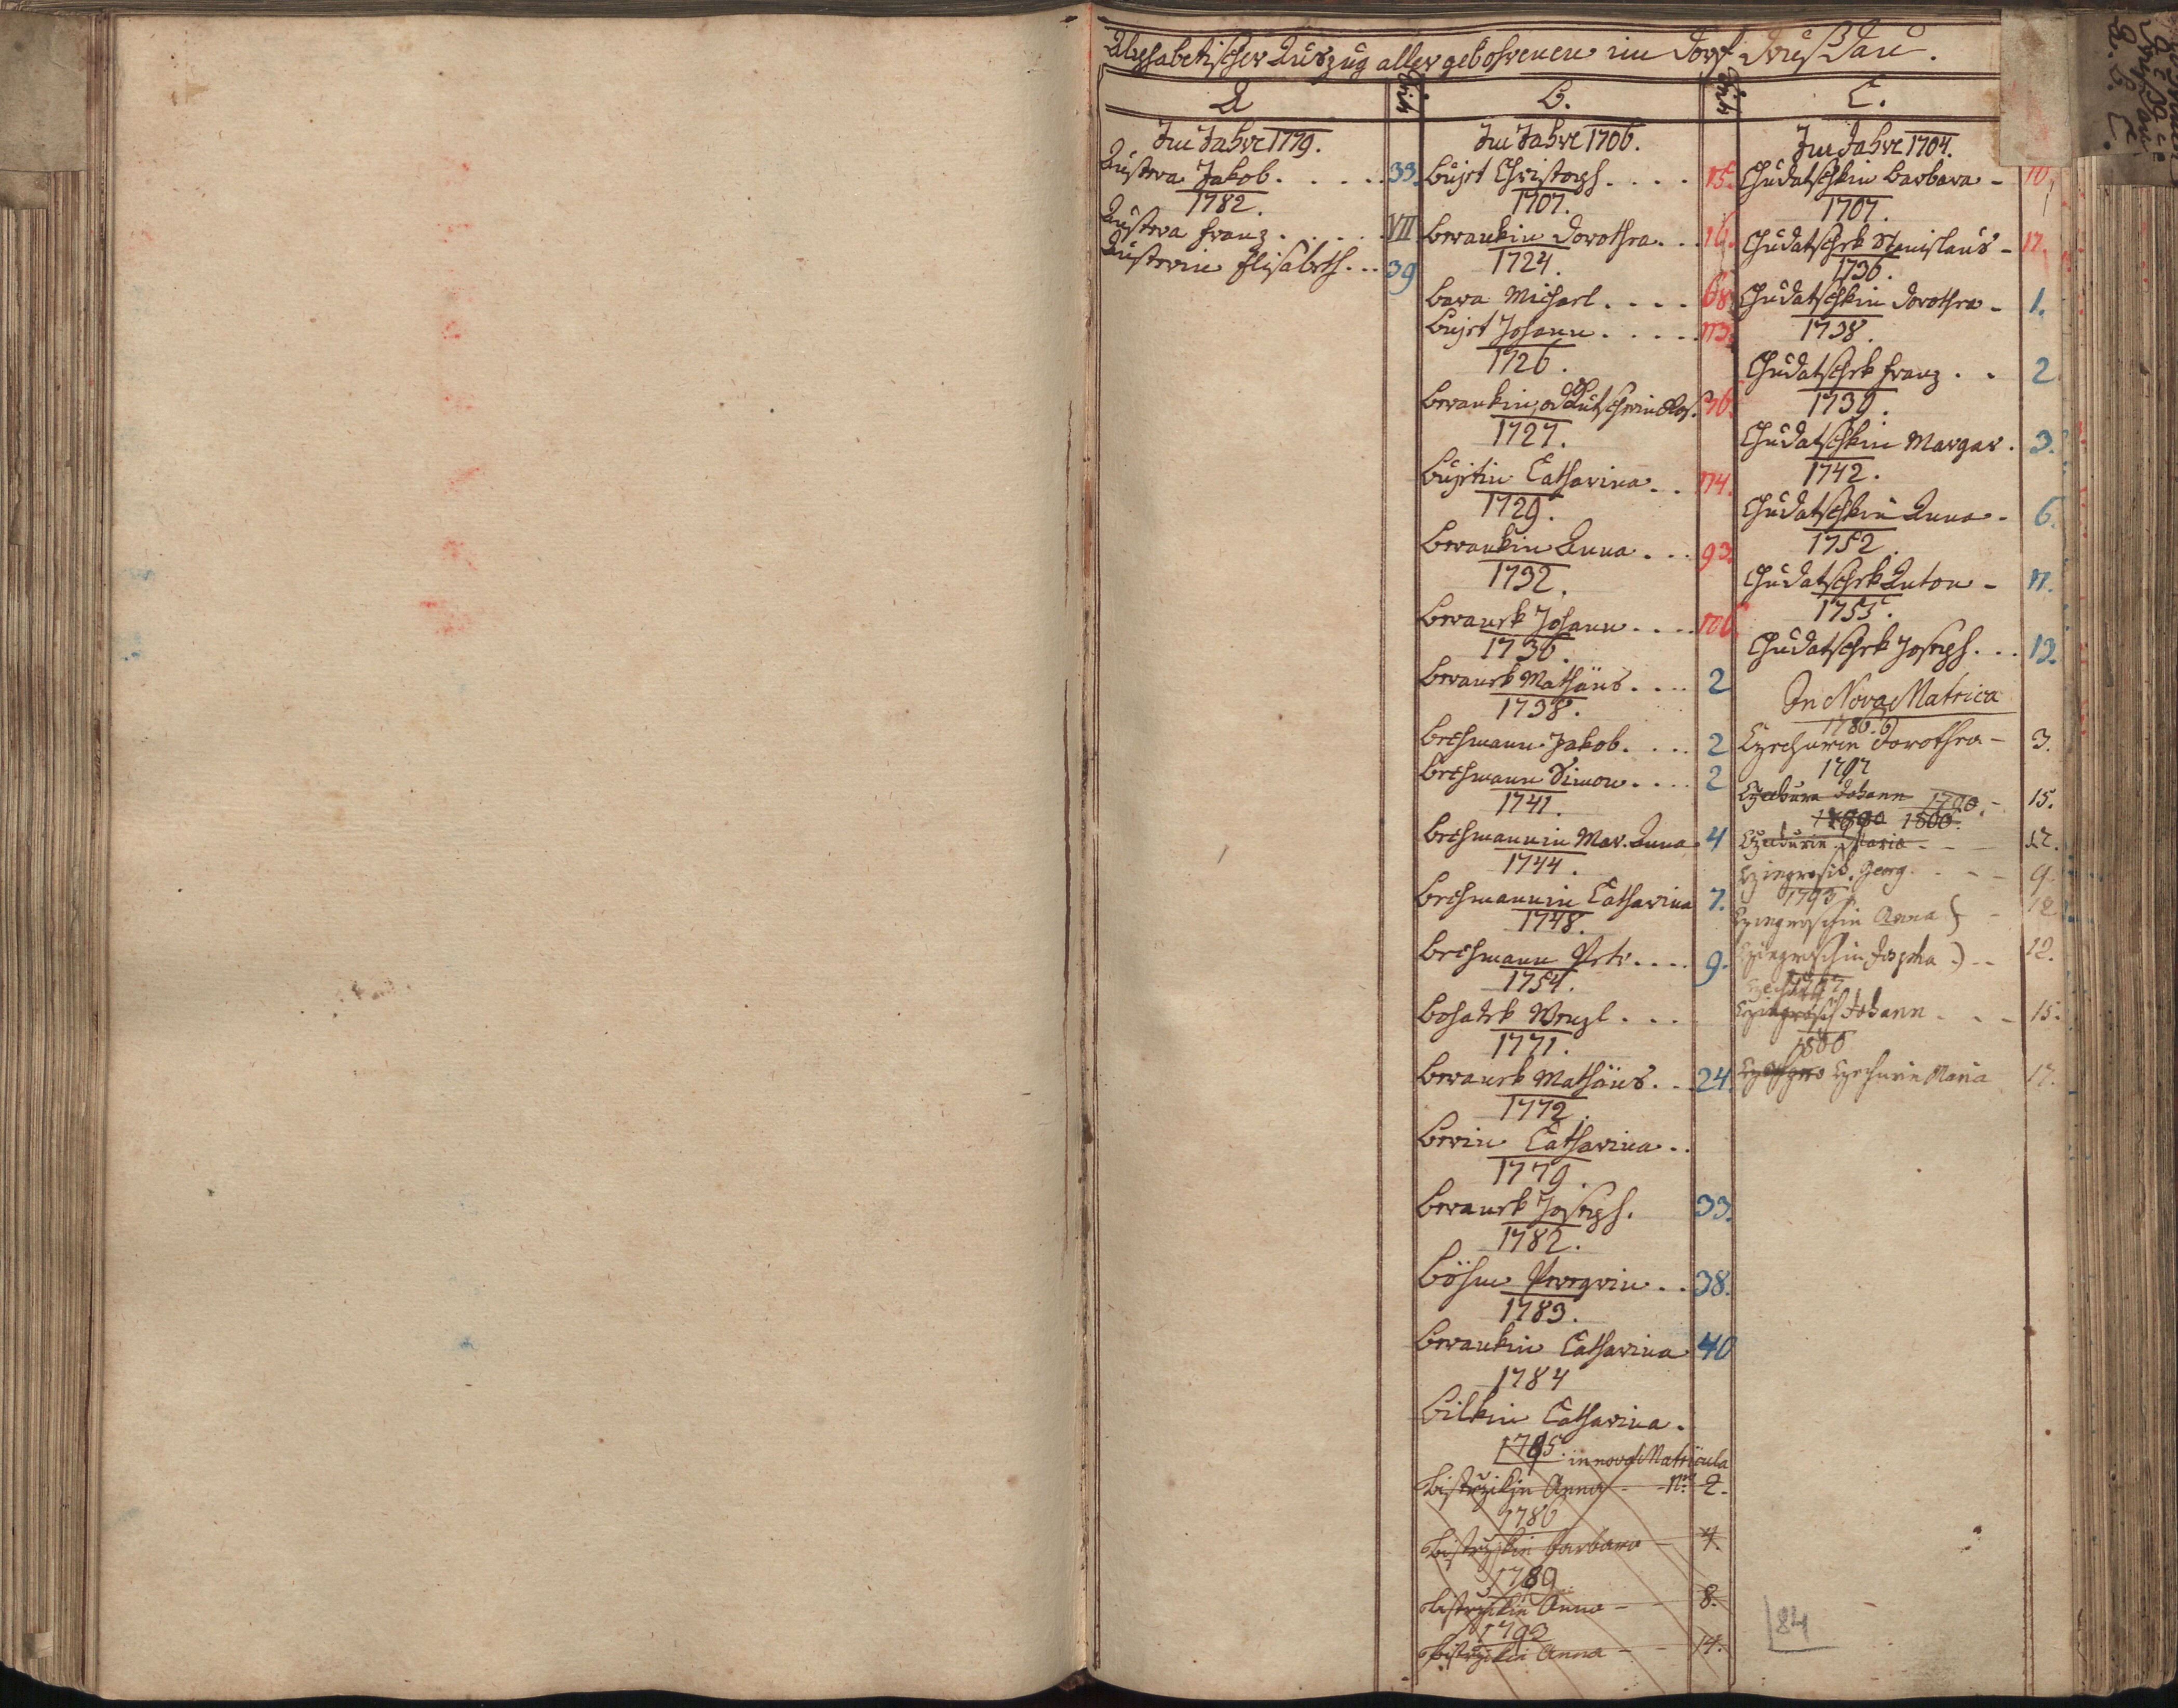 Alphabetischer Auszug aller gebohrenen im Dorf
A
Im Jahre 1779.
Austera Jakob. . . . . 33.
1782.
Austera Franz . . . . . VII
Austerin Elisabeth. . . 39
B.
Im Jahre 1706.
Bujet Christoph. . . . 15.
1707.
Berankin Dorothea. . . 16.
1724.
Bara Michael. . . . 68
Bujet Johann. . . . . 73.
1726.
Berankin, od 76.
1727.
Bujetin Catharina. . 74.
1729.
Berankin Anna. . . 93.
1732.
Beranek Johann. . . . 106
1736.
Beranek Mathäus. . . . 2
1738.
Brehmann Jakob. . . . 2
Brehmann Simon. . . . 2
1741.
Brehmannin Mar. Anna 4
1744.
Brehmannin Catharina 7.
1748.
Brehmann Petr. . . . 9.
1754.
Bosadek Wenzl . . .
1771.
Beranek Mathäus. . 24.
1772
Berin Catharina. .
1779.
Beranek Joseph. 33.
1782.
Böhm Peregrin. . 38.
1783.
Berankin Catharina 40
1784
Bilkin Catharina.
1785. in nova Matricula
Bistrzikin Anna - Nro 2.
1786
Bistrzikin Barbara - 4.
1789
Bistrzikin Anna - - 8.
1793
Bistrzikin Anna - - 14.
C.
Im Jahre 1704.
Chudatschkin Barbara - 10.
1707.
Chudatschek Stanislaus - 17.
1736.
Chudatschkin Dorothea - 1.
1738.
Chudatschek Franz . . 2.
1739.
Chudatschkin Margar. 3.
1742.
Chudatschkin Anna - 6.
1752.
Chudatschek Anton - 11.
1755.
Chudatschek Joseph. . . 13.
In Nova Matrica
1786.
Czechurin Dorothea - 3.
1797
Johann 1790. - 15.
1800.
Maria - - 12.
Georg. - - - 9.
1793
Anna } - 12
- - 12.
Johann - - - 15.
1800
Czechurin Maria 17.
84